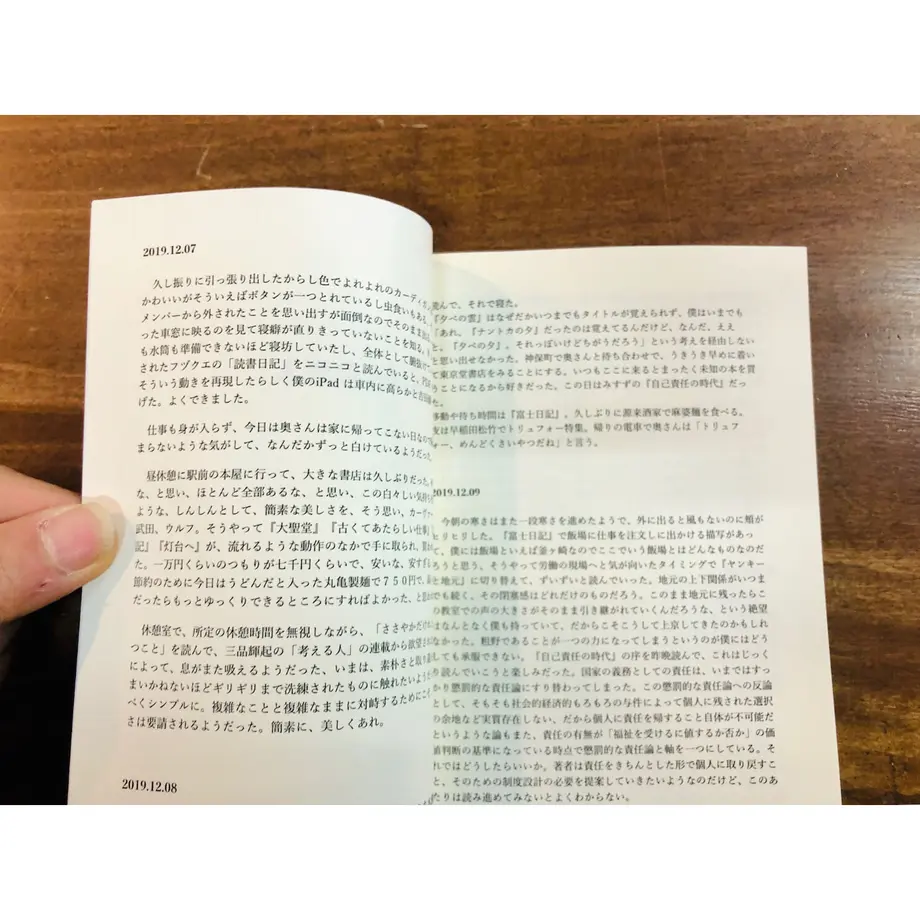 2019.12.07
久し振りに引っ張り出したからし色でよれよれのカーディガン
かわいいがそういえばボタンが一つとれているし虫食いもある。
メンバーから外されたことを思い出すが面倒なのでそのまま
った車窓に映るのを見て寝癖が直りきっていないことを知る。
も水筒も準備できないほど寝坊していたし、全体として
されたフヅクエの「読書日記」をニコニコと読んでいると、
そういう動きを再現したらしく僕のiPad は車内に高らかと
げた。よくできました。
仕事も身が入らず、今日は奥さんは家に帰ってこない日なので
まらないような気がして、なんだかずっと白けているようだった。
昼休憩に駅前の本屋に行って、大きな書店は久しぶりだった。
な、と思い、ほとんど全部あるな、と思い、この白々しい気持
ような、しんしんとして、簡素な美しさを、そう思い、カーヴァー
武田、ウルフ。そうやって『大聖堂』『古くてあたらしい仕事』
記』『灯台へ』が、流れるような動作のなかで手に取られ、
た。一万円くらいのつもりが七千円くらいで、安いな、安す
節約のために今日はうどんだと入った丸亀製麺で７５０円、
だったらもっとゆっくりできるところにすればよかった、と
休憩室で、所定の休憩時間を無視しながら、「ささやかだけ
つこと」を読んで、三品輝起の「考える人」の連載から欲望
によって、息がまた吸えるようだった、いまは、素朴さと取り違
まいかねないほどギリギリまで洗練されたものに触れたいようだ
べくシンプルに。複雑なことと複雑なままに対峙するためにこそ
さは要請されるようだった。簡素に、美しくあれ。
2019.12.08
読んで、それで寝た。
『夕べの雲』はなぜだかいつまでもタイトルが覚えられず、僕はいまでも
「あれ、『ナントカの夕』だったのは覚えてるんだけど、なんだ、ええ
と、『夕べの夕』。それっぽいけどちがうだろう」という考えを経由しない
と思い出せなかった。神保町で奥さんと待ち合わせで、うきうき早めに着い
て東京堂書店をみることにする。いつもここに来るとまったく未知の本を買
うことになるから好きだった。この日はみすずの『自己責任の時代』だっ
移動や待ち時間は『富士日記』。久しぶりに源来酒家で麻婆麺を食べる。
夜は早稲田松竹でトリュフォー特集。帰りの電車で奥さんは「トリュフ
ォー、めんどくさいやつだね」と言う。
2019.12.09
今朝の寒さはまた一段寒さを進めたようで、外に出ると風もないのに頬が
ヒリヒリした。『富士日記』で飯場に仕事を注文しに出かける描写があっ
て、僕には飯場といえば釜ヶ崎なのでここでいう飯場とはどんなものなのだ
ろうと思う、そうやって労働の現場へと気が向いたタイミングで『ヤンキー
と地元』に切り替えて、ずいずいと読んでいった。地元の上下関係がいつま
でも続く、その閉塞感はどれだけのものだろう。このまま地元に残ったらこ
の教室での声の大きさがそのまま引き継がれていくんだろうな、という絶望
はなんとなく僕も持っていて、だからこそこうして上京してきたのかもしれ
なかった。粗野であることが一つの力になってしまうというのが僕にはどう
しても承服できない。『自己責任の時代』の序を昨晩読んで、これはじっく
り読んでいこうと楽しみだった。国家の義務としての責任は、いまではすっ
かり懲罰的な責任論にすり替わってしまった。この懲罰的な責任論への反論
として、そもそも社会的経済的もろもろの与件によって個人に残された選択
の余地など実質存在しない、だから個人に責任を帰すること自体が不可能だ
というような論もまた、責任の有無が「福祉を受けるに値するか否か」の価
値判断の基準になっている時点で懲罰的な責任論と軸を一つにしている。そ
れではどうしたらいいか。著者は責任をきちんとした形で個人に取り戻すこ
と、そのための制度設計の必要を提案していきたいようなのだけど、このあ
たりは読み進めてみないとよくわからない。